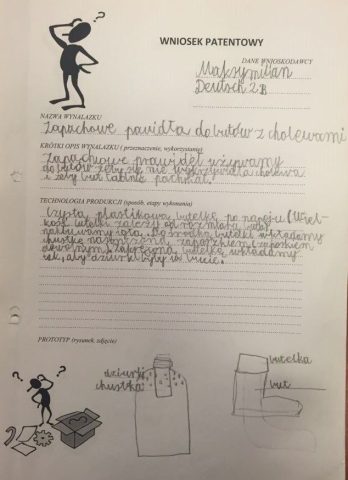 WNIOSEK PATENTOWY
DANE WNIOSKODAWCY
Maksymilian
Deutsch 2B
NAZWA WYNALAZKU
Zapachowe pawidła do butów z cholewami
KRÓTKI OPIS WYNALAZKU ( przeznaczenie, wykorzystanie)
Zapachowe prawideł używamy
do butów żeby się nie wykrzywiła cholewa
i żeby but ładnie pachniał.
TECHNOLOGIA PRODUKCJI (sposób, etapy wykonania)
Czystą plastikową butelkę po napoju (Wiel-
kość butelki zależy od rozmiaru buta)
nakłuwamy igłą. Do środka butelki wkładamy
chustkę nasączoną zapachem
Zakręconą butelkę wkładamy
tak, aby dziurki były w bucie.
PROTOTYP (rysunek, zdjęcie)
dziurki
chustka
butelka
but